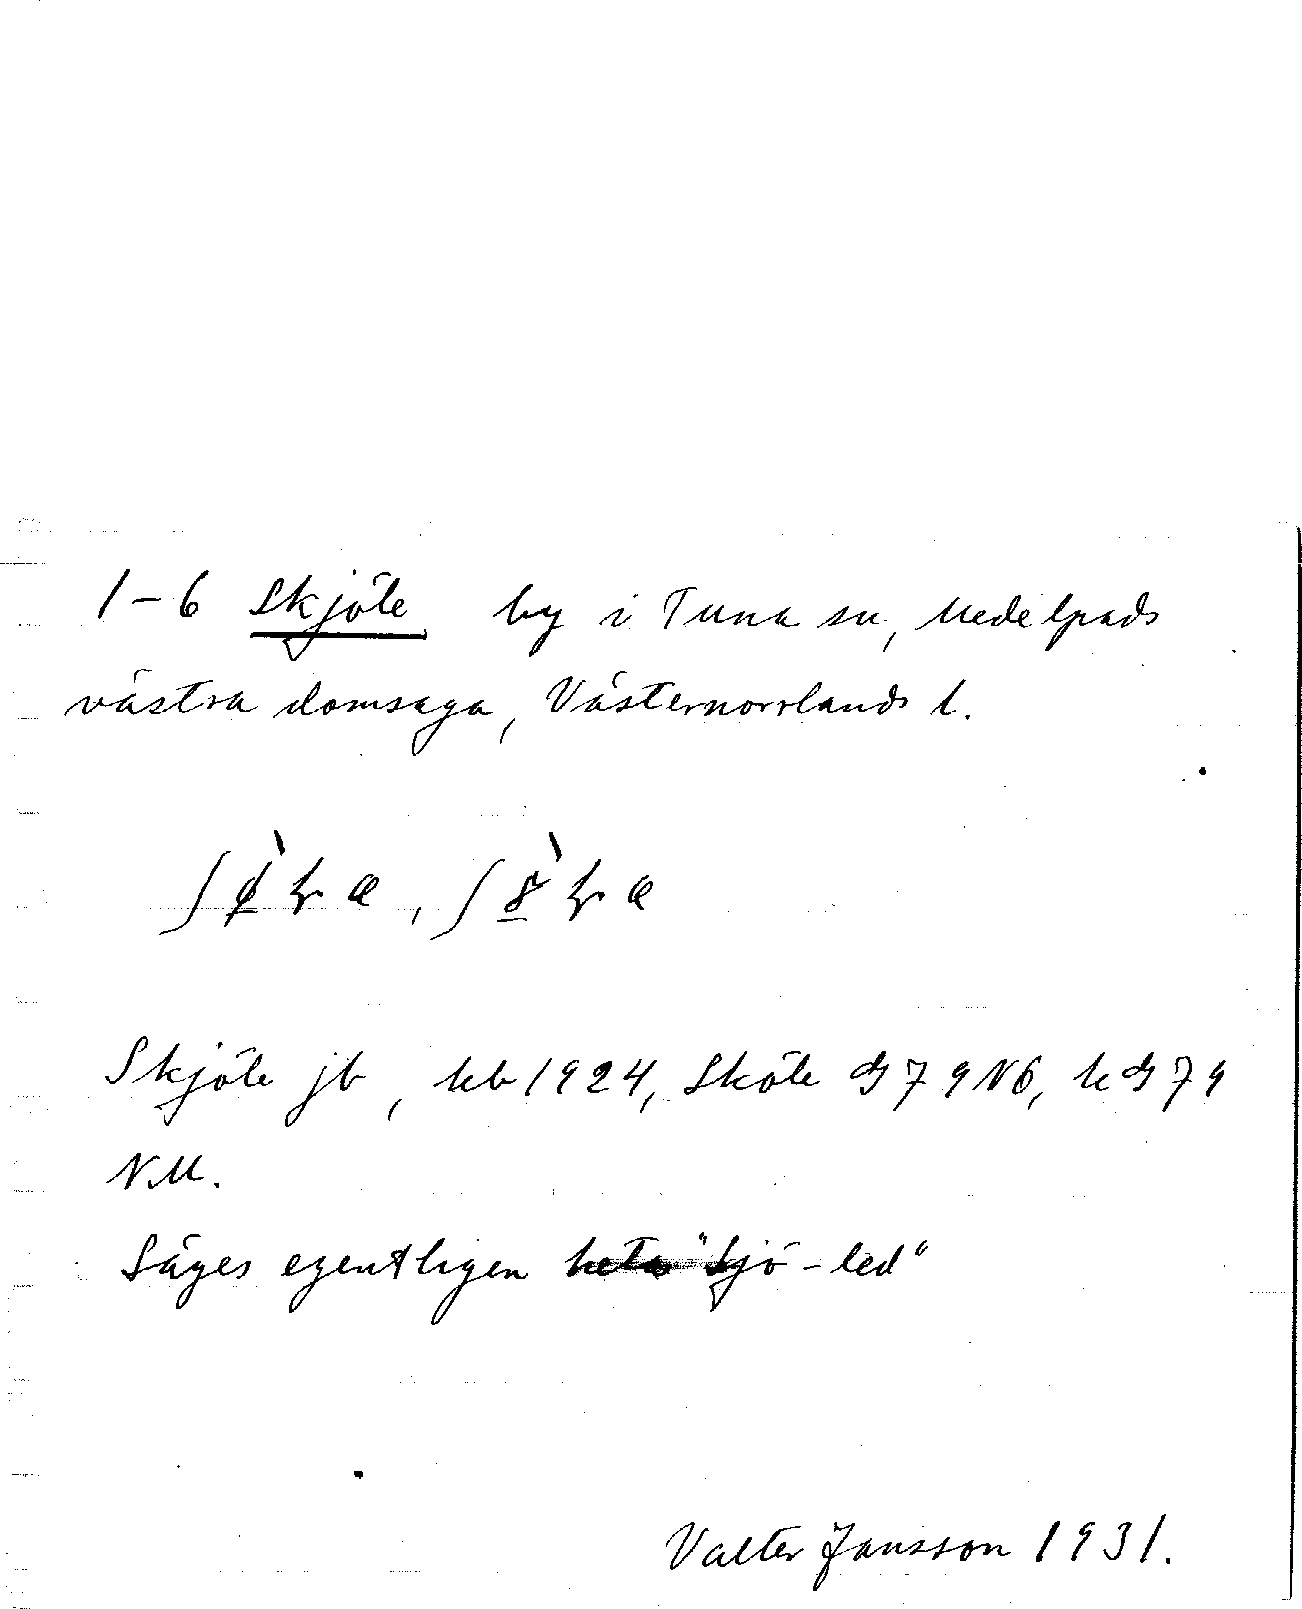 1-6 Skjöle by i Tuna sn, Medelpads
västra domsaga, Västernorrlands l.
Skjöle jb, kb 1924, Sköle G 79 NÖ, k G 79
N.M.
Säges egentligen heta "Sjö-led"
Valter Jansson 1931.